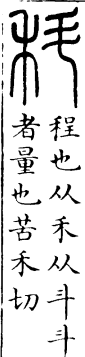 科
程也从禾从斗斗
者量也苦禾切